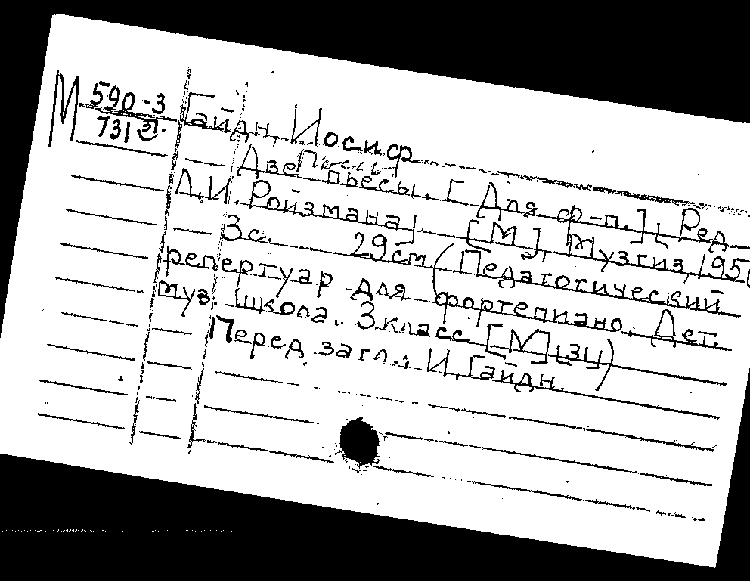 М 590-3
731
Гайдн, Иосиф
Две пьесы. [Для ф-п.] Ред.
Л.И. Ройзмана. [М], Музгиз, 195
3с. 29см (Педагогический
репертуар для фортепиано. Дет.
муз. школа. 3 класс [М]
Перед загл.: И. Гайдн.